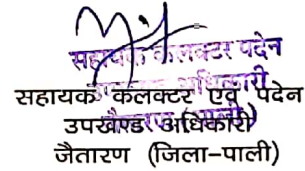 सहायक कलक्टर पदेन
उपखण्ड अधिकारी
सहायक कलक्टर एवं पदेन
उपखण्ड अधिकारी
जैतारण (जिला-पाली)